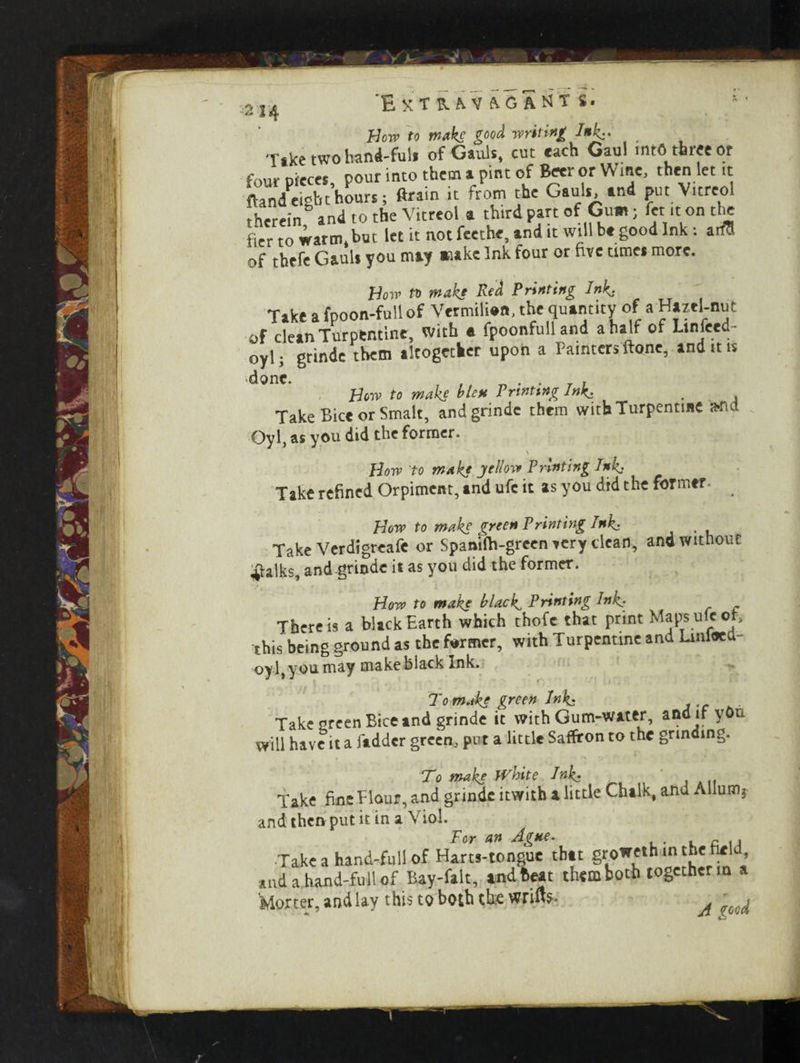 214 EXTRAVAGANTS.
How to make good writing Ink.
Take two hand-fuls of Gauls, cut each Gaul into three or
four pieces, pour into them a pint of Beer or Wine, then let it
ſtand eight hours; ſtrain it from the Gauls, and put Vitreol
therein, and to the Vitreol a third part of Gum; ſet it on the
fier to warm, but let it not ſeethe, and it will be good Ink: and
of theſe Gauls you may make Ink four or five times more.
How to make Red Printing Ink.
Take a ſpoon-full of Vermilion, the quantity of a Hazel-nut
of clean Turpentine, with a ſpoonfull and a half of Linſeed-
oyl; grinde them altogether upon a Painters ſtone, and it is
done.
How to make bleu Printing Ink.
Take Bice or Smalt, and grinde them with Turpentine and
Oyl, as you did the former.
How to make yellow Printing Ink.
Take refined Orpiment, and uſe it as you did the former.
How to make green Printing Ink.
Take Verdigreaſe or Spaniſh-green very clean, and without
ſtalks, and grinde it as you did the former.
How to make black Printing Ink.
There is a black Earth which thoſe that print Maps uſe of,
this being ground as the former, with Turpentine and Linſeed-
oyl, you may make black Ink.
To make green Ink.
Take green Bice and grinde it with Gum-water, and if you
will have it a ſadder green, put a little Saffron to the grinding.
To make White Ink.
Take fine Flour, and grinde it with a little Chalk, and Allum;
and then put it in a Viol.
For an Ague.
Take a hand-full of Harts-tongue that groweth in the field,
and a hand-full of Bay-ſalt, and beat them both together in a
Morter, and lay this to both the wriſts.
A good